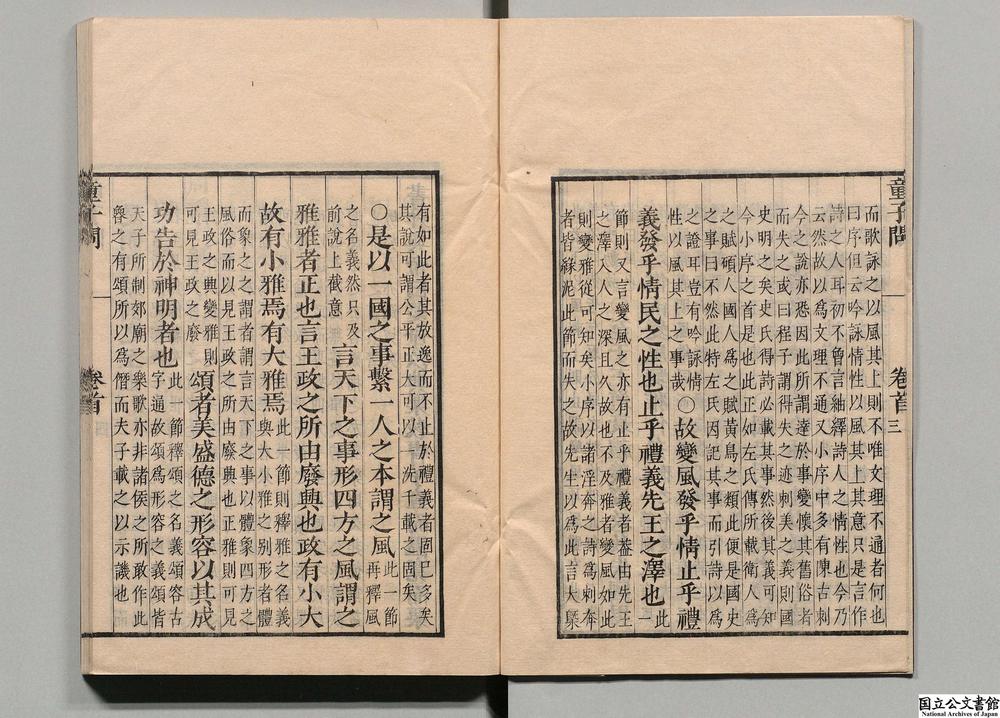 童子問
卷首
三
而歌詠之以風其上則不唯文理不通者何也
曰序但云吟詠情性以風其上其意只是言作
詩之人耳初不曾言紬繹詩人之情性也今乃
云然故以爲文理不通又小序中多有陳古刺
今之說亦恐因此所謂達於事變懷其舊俗者
而失之或曰程子謂得失之迹刺美之義則國
史明之矣史氏得詩必載其事然後其義可知
今小序之首是也此正如左氏傳所載衛人爲
之賦碩人國人爲之賦黃鳥之類此便是國史
之事曰不然此特左氏因記其事而引詩以爲
之證耳豈有吟詠情
性以風其上之事哉
○故變風發乎情止乎禮
義發乎情民之性也止乎禮義先王之澤也
此一
節則又言變風之亦有止乎禮義者蓋由先王
之澤入人之深且久故也不及雅者變風如此
則變雅從可知矣小序以諸淫奔之詩爲刺奔
者皆緣泥此節而失之故先生以爲此言大槩
有如此者其放逸而不止於禮義者固已多矣
其說可謂公平正大可以一洗千載之固矣
○是以一國之事繫一人之本謂之風
此一節
再釋風
之名義然只及
前說上截意
言天下之事形四方之風謂之
雅雅者正也言王政之所由廢興也政有小大
故有小雅焉有大雅焉
此一節則釋雅之名義
與大小雅之別形者體
而象之之謂者謂言天下之事以體象四方之
風俗而以見王政之所由廢興也正雅則可見
王政之興變雅則
可見王政之廢
頌者美盛德之形容以其成
功告於神明者也
此一節釋頌之名義頌容古
字通故頌爲形容之義頌皆
天子所制郊廟之樂歌亦非諸侯之所敢作此
魯之有頌所以爲僭而夫子載之以示譏也
童子問
卷首
国立公文書館
National Archives of Japan